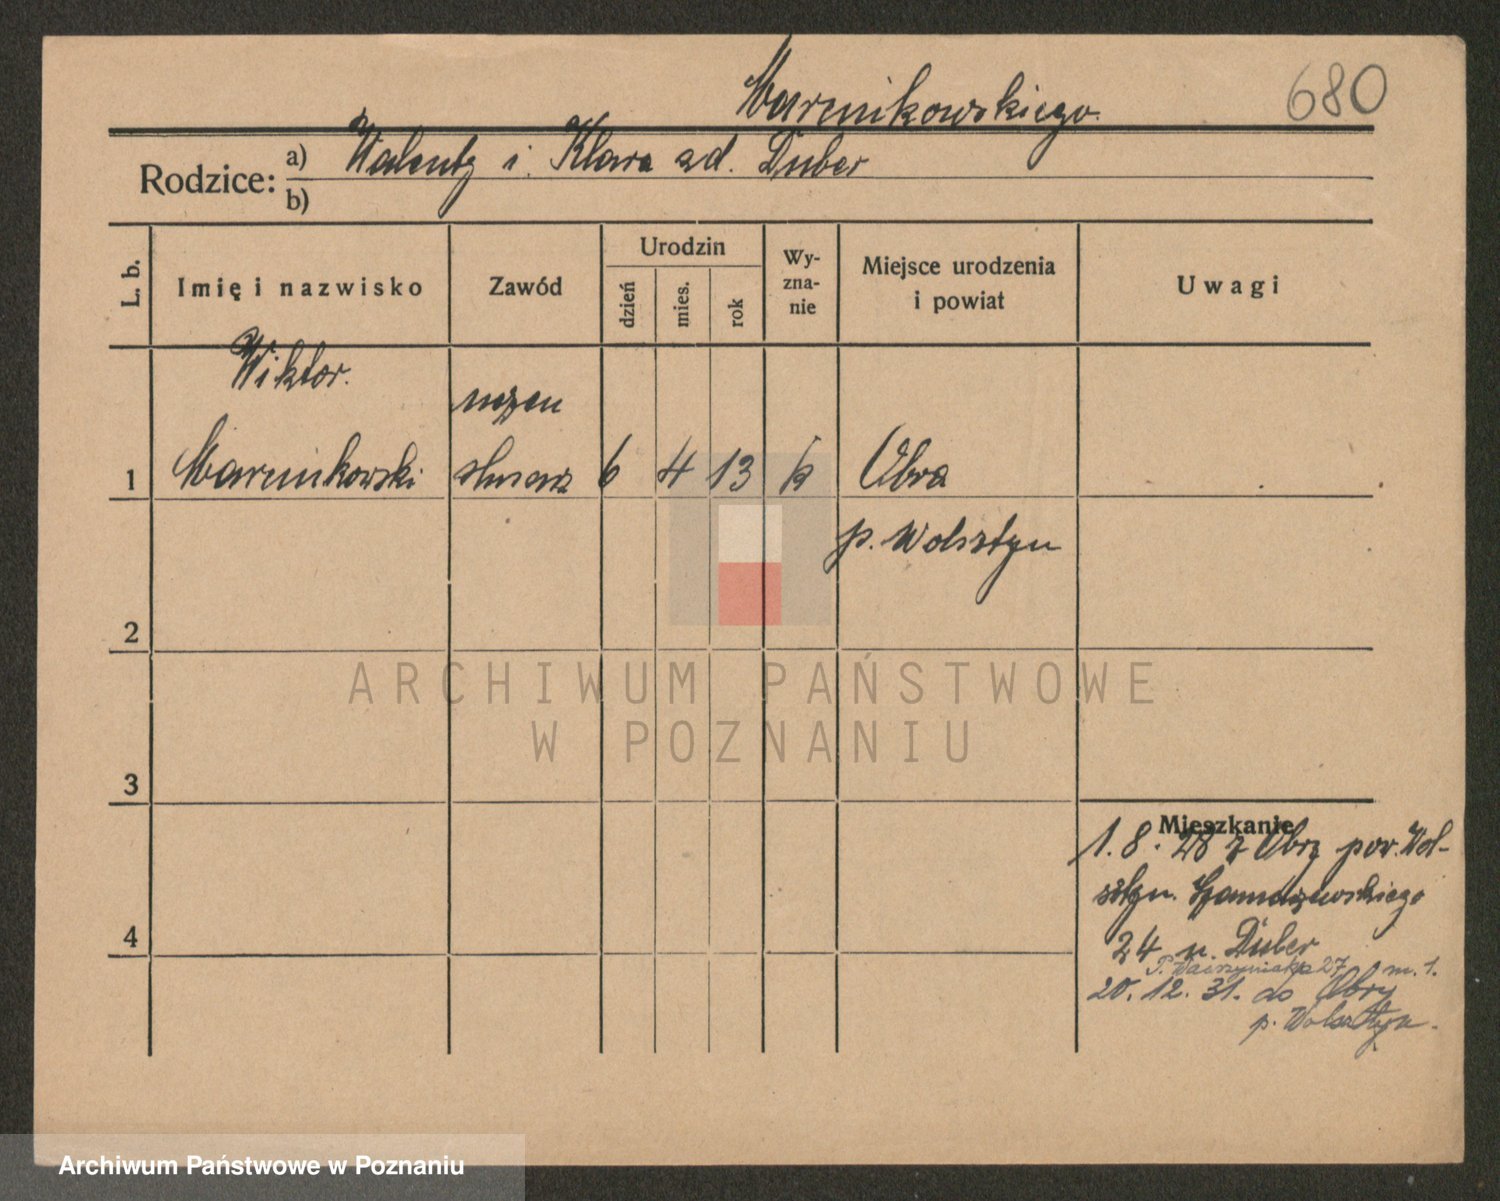 Marcinkowskiego.
680
Rodzice: a) Walenty i Klara zd. Duber
b)
L. b.
Imię i nazwisko
Zawód
Urodzin
dzień
mies.
rok
Wy-
zna-
nie
Miejsce urodzenia
i powiat
Uwagi
Wiktor.
uczeń
1 Marcinkowski ślusarz 6 4 13 k Obra
p. Wolsztyn
2
3
4
Mieszkanie
1. 8. 28 z Obry pow. Wol-
sztyn.
24 u. Duber
27 m. 1.
20. 12. 31. do Obry
p. Wolsztyn.
ARCHIWUM PAŃSTWOWE
W POZNANIU
Archiwum Państwowe w Poznaniu